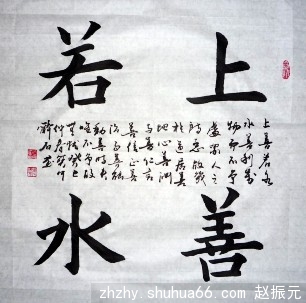 上善
若水
上善若水
水善利萬
物而不爭
處眾人之
所惡故幾
於道居善
地心善淵
与善仁言
善信正善
治事善能
動善時夫
唯不争故
無尤
zhzhy.shuhua66.com 赵振元